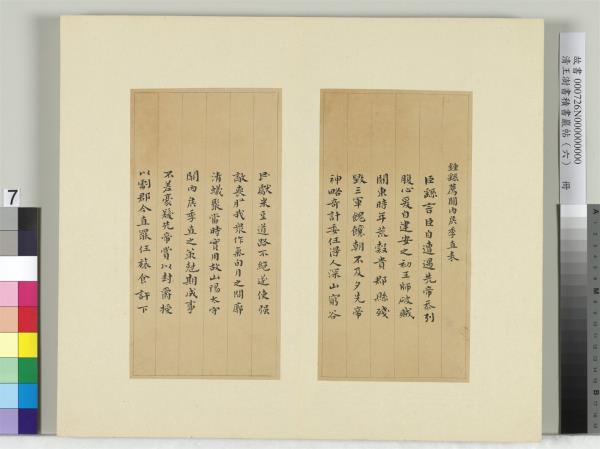 鍾繇薦關內侯季直表
臣繇言臣自遭遇先帝忝列
腹心爰自建安之初王師破賊
關東時年荒穀貴郡縣殘
毀三軍餽饟朝不及夕先帝
神略奇計委任得人深山窮谷
民獻米豆道路不絕遂使強
敵喪膽我眾作氣旬月之間廓
清蟻聚當時實用故山陽太守
關內侯季直之策剋期成事
不差豪髮先帝賞以封爵授
以劇郡今直罷任旅食許下
故書 000726N000000000
清王澍書積書巖帖(六) 冊
7